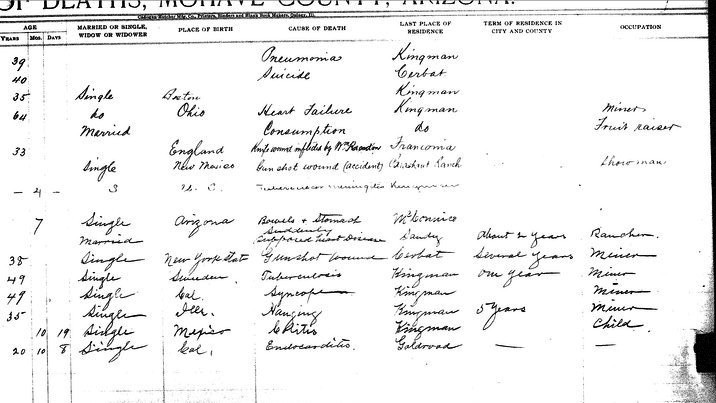 OF DEATHS, MOHAVE COUNTY, ARIZONA.
AGE MARRIED OR SINGLE, WIDOW OR WIDOWER PLACE OF BIRTH CAUSE OF DEATH LAST PLACE OF RESIDENCE TERM OF RESIDENCE IN CITY AND COUNTY OCCUPATION
YEARS MOS. DAYS
39 Pneumonia Kingman
40 Suicide Cerbat
35 Single Boston Kingman
64 do Ohio Heart Failure Kingman Miner
Married Consumption do Fruit raiser
33 England Knife wound inflicted by Wm Franconia
Single New Mexico Gunshot wound (accident) Ranch Showman
— 4 — S
7 Single Arizona Bowels & Stomach
Married Suddenly Supposed heart Disease Sandy About 2 years Rancher.
38 Single New York State Gunshot wound Cerbat Several years Miner
49 Single Sweden Tuberculosis Kingman one year Miner
49 Single Cal. Syncope Kingman Miner
35 Single Ills. Hanging Kingman 5 years Miner
10 19 Single Mexico Kingman Child.
20 10 8 Single Cal, Endocarditis. Goldroad — —